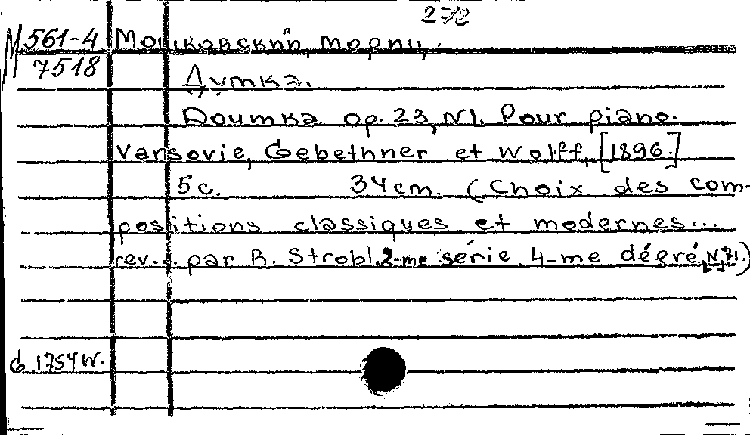 272
М 561-4 Мошковский, Мориц.
7518
Думка.
Doumka op. 23, N1. Pour piano.
Varsovie, Gebethner et Wolff, [1896.]
5 c. 34 cm. (Choix des com-
positions classiques et modernes...
rev. par R. Strobl. 2-me série. 4-me dégré,
G 1754 W.